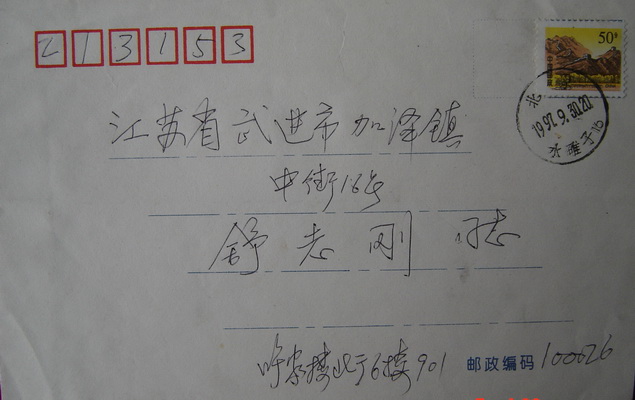 213153
50分
北京
1997.9.30.20
水碓子15
江苏省武进市加泽镇
中街16号
舒志刚 同志
呼家楼北街6楼901 邮政编码100026